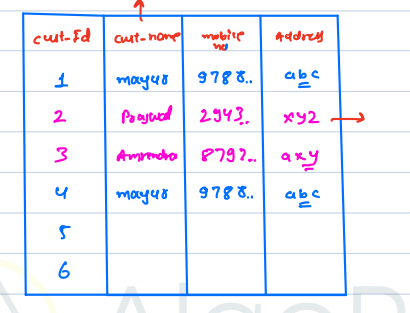 cust-Id cust-name mobile no Address
1 mayur 9788.. abc
2 Prajwal 2943.. xyz
3 Amrendra 8792.. axy
4 mayur 9788.. abc
5
6